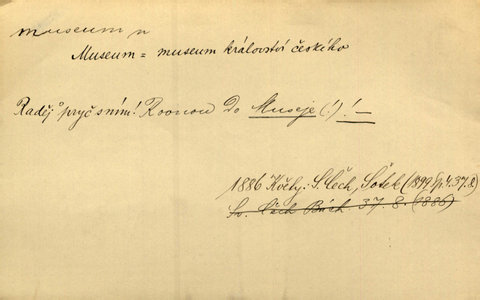 museum n
Museum = museum království českého
Raděj pryč s ním! Rovnou do Museje (!) ! —
1886 Květy. S. Čech, Šotek (1899) p. 4. 37. 8.)
Sv. Čech Bách 37. 8. (1886)